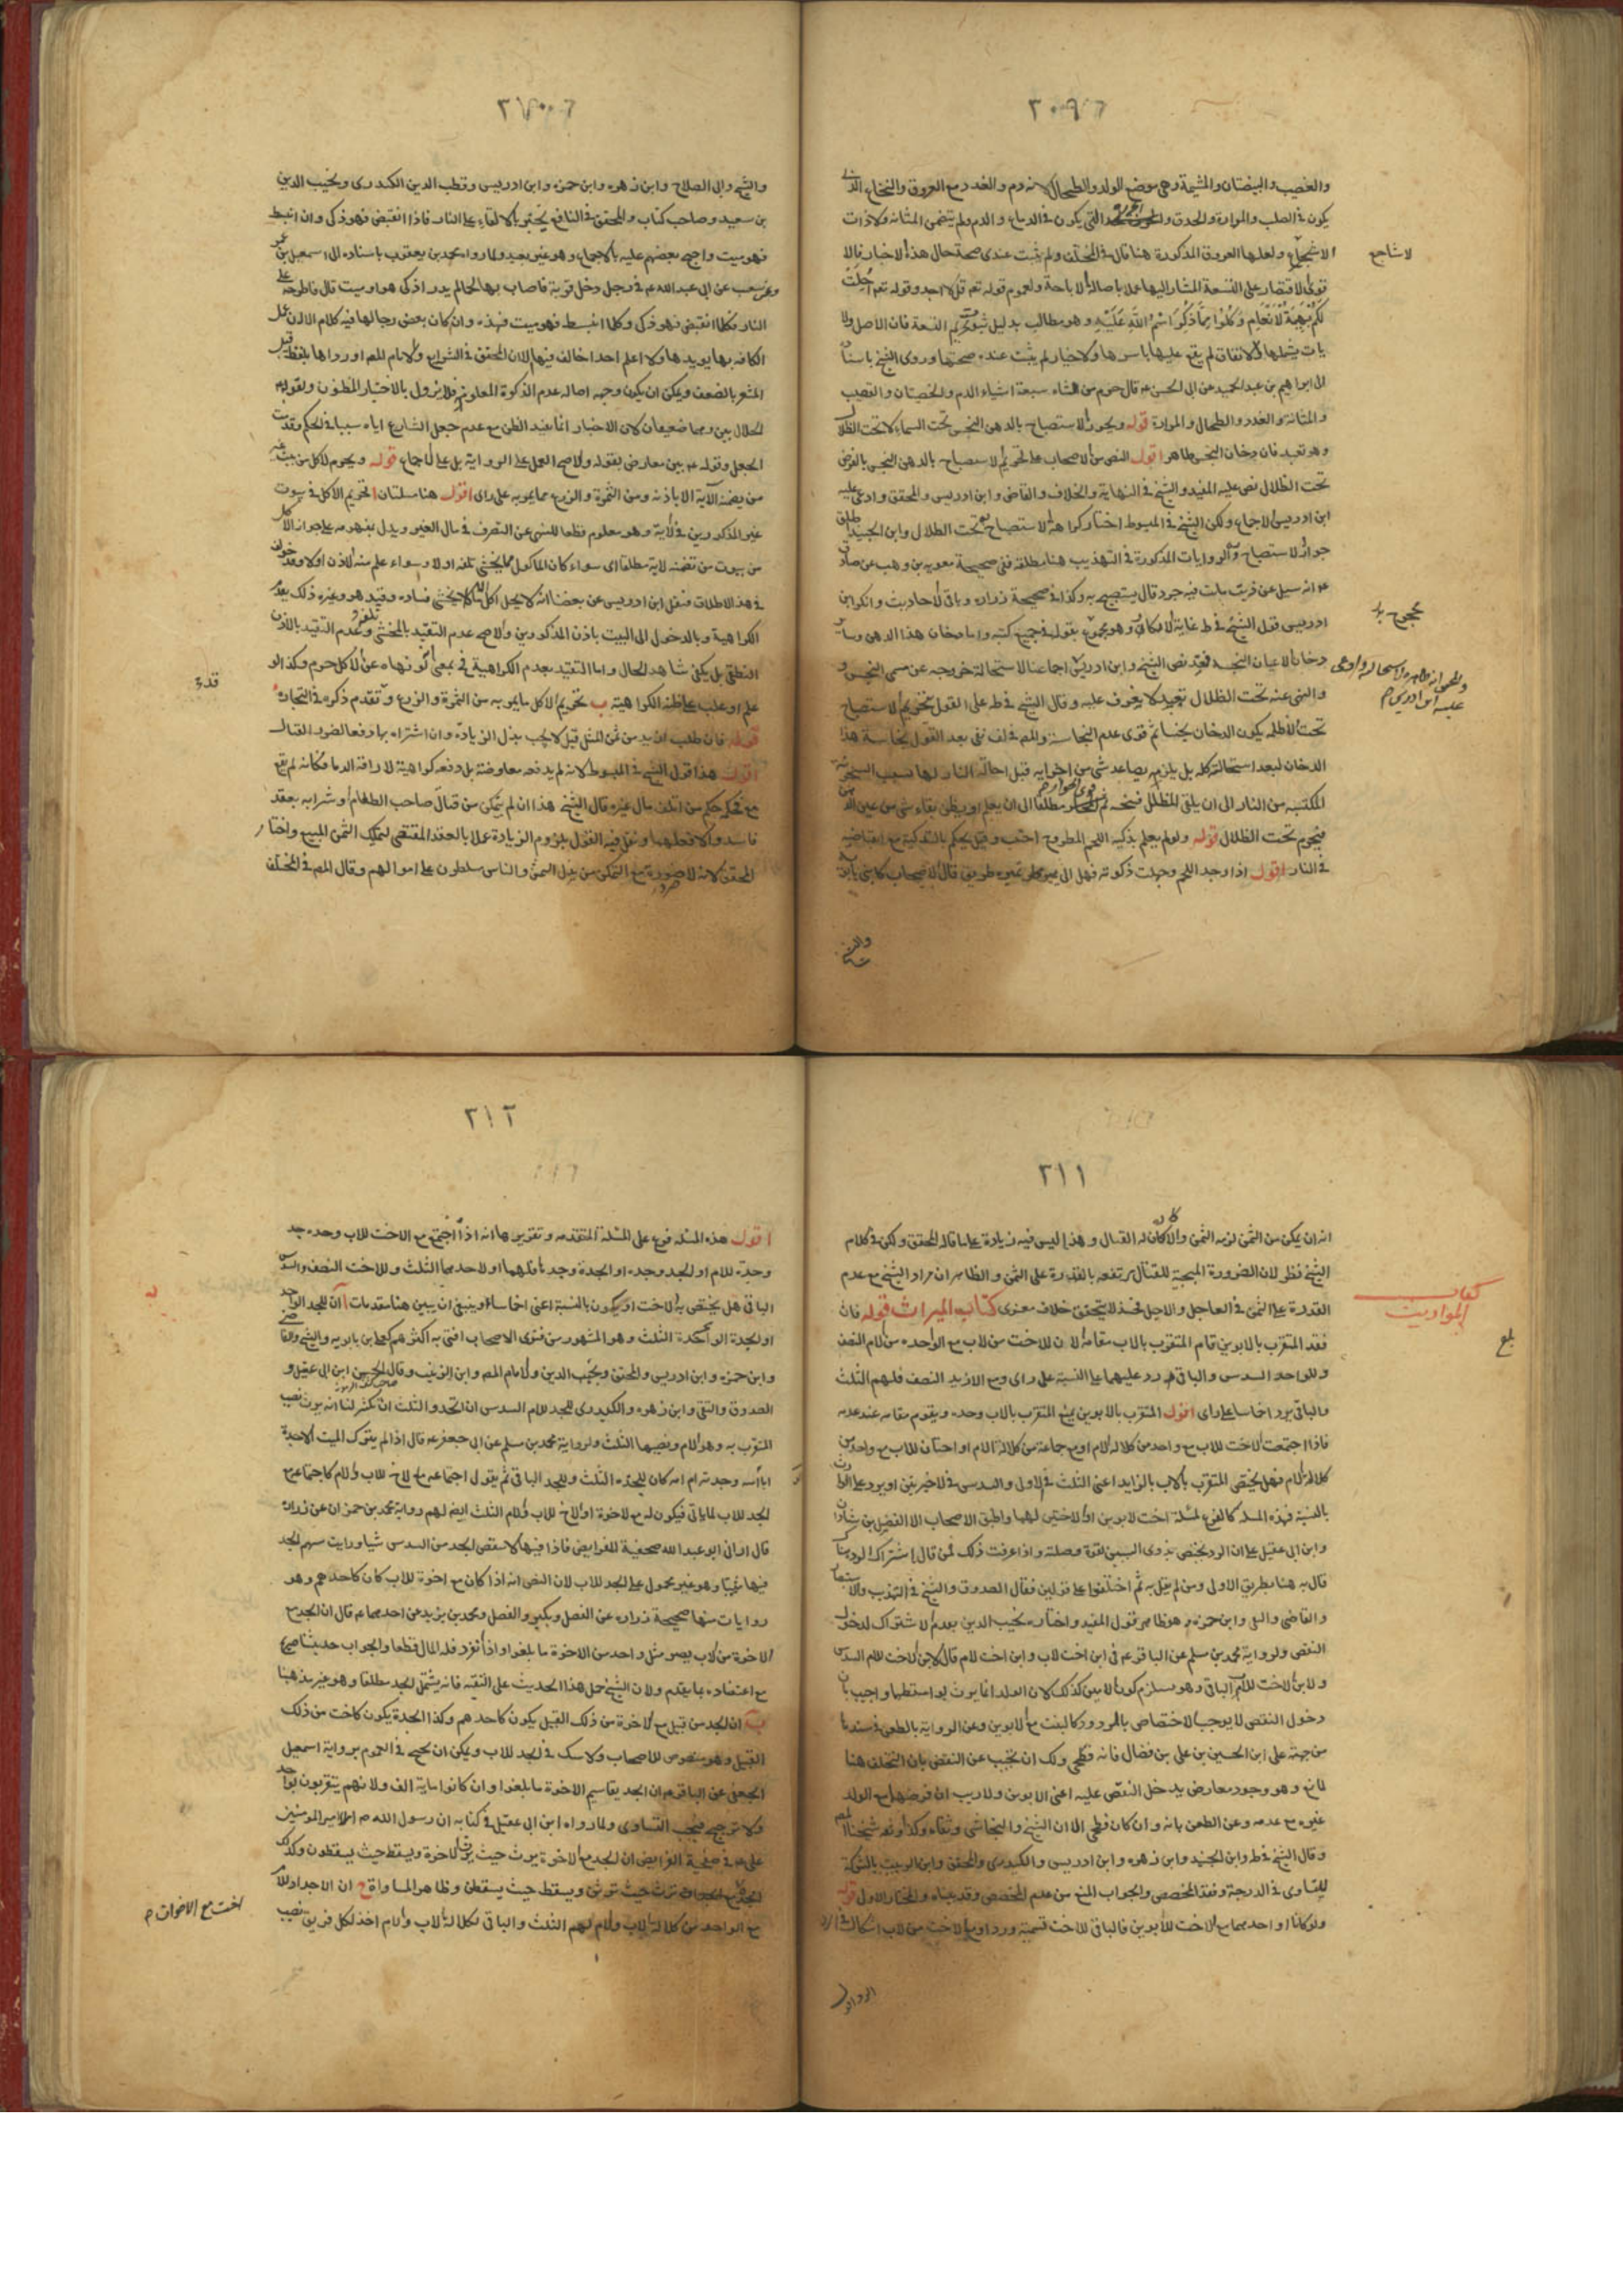 ٢٠٩
والقضيب والبيضتان والمشيمة وهى موضع الولد والطحال لانه دم والغدد مع العروق والنخاع الذى
يكون فى الصلب والمرارة والحدق التى يكون فى الدماغ والدم ولم يتضمن المثانة ولا ذات
الاشاجع ولعلها العروق المذكورة هنا قال فى المختلف ولم يثبت عندى صحة حال هذه الاخبار
لا شاجع
قوى الاقتصار على التسعة المشار اليها عملا باصالة الاباحة ولعموم قوله تعم قل لا اجد وقوله تعم احلت
لكم بهيمة الانعام وكلوا مما ذكر اسم الله عليه وهو مطالب بدليل تحريم التسعة فان الاصل والا
يات يشملها والاتفاق لم يقع عليها باسرها والاخبار لم يثبت عنده صحتها وروى الشيخ باسناده
الى ابراهيم بن عبد الحميد عن ابى الحسن ع قال حرم من الشاء سبعة اشياء الدم والخصيتان والقضيب
والمثانة والغدد والطحال والمرارة قوله ويجوز الاستصباح بالدهن النجس تحت السماء لا تحت الظلال
وهو تعبد فان دخان النجس طاهر اقول النص من الاصحاب على تحريم الاستصباح بالدهن النجس بالعرض
تحت الظلال نص عليه المفيد والشيخ فى النهاية والخلاف والقاضى وابن ادريس والمحقق وادعى عليه
ابن ادريس الاجماع ولكن الشيخ فى المبسوط اختار كراهة الاستصباح به تحت الظلال وابن الجنيد اطلق
جواز الاستصباح والروايات المذكورة فى التهذيب هنا مطلقة ففى صحيحة معوية بن وهب عن صادق
ع انه سيل عن جرذ مات فيه قال يستصبح به وكذا فى صحيحة زرارة وباقى الاحاديث وانكر ابن
ادريس قول الشيخ فى ط غاية الانكار وهو محجوج بقوله فى جميع كتبه واما دخان هذا الدهن وساير
محجوج
دخان الاعيان النجسة فقد نص الشيخ وابن ادريس اجماعنا لاستحالة خروجه عن مسمى النجس و
عليه ابن ادريس م
والنهى عنه تحت الظلال تعبد لا يعرف عليه وقال الشيخ فى ط على القول بتحريم الاستصباح
تحت الاظلة يكون الدخان نجسا ثم قوى عدم النجاسة والمص فى لف نفى بعد القول بنجاسة هذا
الدخان لبعد استحالة كله بل يلزمه تصاعد شى من اجزايه قبل احالة النار لها بسبب السخونة
المكتسبة من النار الى ان يلقى المظلل مطلقا الى ان يعلم او يظن بقاء شى من عين الدهن
فيحرم تحت الظلال قوله ولو لم يعلم بذكية اللحم المطروح اجتنب وقيل يحكم بالتذكية مع انقباضه
فى النار اقول اذا وجد اللحم وجهلت ذكوته فهل الى طريق قال الاصحاب
والشيخ
٢١٠
والشيخ وابى الصلاح وابن زهره وابن حمزه وابن ادريس وقطب الدين الكيدرى ونجيب الدين
بن سعيد وصاحب كتاب والمحقق فى النافع يختبر بالالقاء على النار فاذا انقبض فهو ذكى وان انبسط
فهو ميت واحتج بعضهم عليه بالاجماع وهو غير بعيد ولما رواه محمد بن يعقوب باسناده الى اسمعيل بن
شعيب عن ابى عبد الله ع فى رجل دخل قرية فاصاب بها لحما لم يدر اذكى هو او ميت قال فاطرحه على
النار فكلما انقبض فهو ذكى وكلما انبسط فهو ميت فهذه وان كان بعض رجالها فيه كلام الا ان عمل
الكافة بها يويدها ولا اعلم احدا خالف فيها الا ان المحقق فى الشرايع والامام المص اورداها بلفظ قيل
المشعر بالضعف ويمكن ان يكون وجهه اصالة عدم الذكوة المعلوم فلا يزول بالاخبار المظنون ولقوله
الحلال بين وهما ضعيفان لان الاخبار انما تفيد الظن مع عدم جعل الشارع اياه سببا فى الحكم وقد ثبت
الجعل وقوله ع بين معارض بقوله والاصح العمل على الرواية بل على الاجماع قوله ويحرم الاكل من بيت غير
من تضمنه الآية الا باذنه ومن الثمرة والزرع مما يمر به على راى اقول هنا مسئلتان ا تحريم الاكل فى بيوت
غير المذكورين فى الاية وهو معلوم قطعا للنهى عن التصرف فى مال الغير ويدل بمفهومه على جواز الاكل
من بيوت من تضمنته الاية مطلقا اى سواء كان الماكول مما يخشى تلفه اولا وسواء علم منه الاذن او لا وقد خولف
فى هذا الاطلاق فنقل ابن ادريس عن بعضنا انه لا يحل اكل ما لا يخشى فساده وقيد هو وغيره ذلك بعدم
الكراهية وبالدخول الى البيت باذن المذكورين والاصح عدم التقيد بالمخشى تلفه وعدم التقيد بالاذن
النطقى بل يكفى شاهد الحال واما التقيد بعدم الكراهية فى بمعنى لو نهاه عن الاكل حرم وكذا لو
علم او غلب على ظنه الكراهية ب تحريم الاكل مما يمر به من الثمرة والزرع وتقدم ذكره فى التجارة
قوله فان طلب ازيد من ثمن المثل قيل لا يجب بذل الزيادة وان اشتراه بها دفعا لضرر القتال
اقول هذا قول الشيخ فى المبسوط لانه لم يدفعه معاوضة بل دفعه كراهية لاراقة الدما فكانه لم يقع
مع فحكمه حكم من اتلف مال غيره قال الشيخ هذا ان لم يتمكن من قتال صاحب الطعام او شرايه بعقد
فاسد والا فعلهما ونقل فيه القول بلزوم الزيادة عملا بالعقد المقتضى لتملك الثمن المبيع واختار
المحقق لانه لا ضرورة مع التمكن من بذل الثمن والناس مسلطون على اموالهم وقال المص فى المختلف
٢١١
انه ان يمكن من الثمن لزمه الثمن والا كان له القتال وهذا ليس فيه زيادة على ما قاله المحقق ولكن فى كلام
الشيخ نظر لان الضرورة المبيحة للقتال مرتفعه بالقدرة على الثمن والظاهر ان مراد الشيخ مع عدم
القدرة على الثمن فى العاجل والاجل فحينئذ لا يتحقق خلاف معنوى كتاب الميراث قوله فان
كتاب المواريث
فقد المتقرب بالابوين قام المتقرب بالاب مقامه الا ان للاخت من الاب مع الواحده من الام النصف
بلغ
وللواحد السدس والباقى يرد عليهما على النسبة على راى ومع الازيد النصف فلهم الثلث
والباقى يرد اخماسا على راى اقول المتقرب بالابوين يمنع المتقرب بالاب وحده ويقوم مقامه عند عدمه
فاذا اجتمعت الاخت للاب مع واحد من كلالة الام او مع جماعة من كلالة الام او اختان للاب مع واحد من
كلالة الام فهل يختص المتقرب بالاب بالزايد اعنى الثلث فى الاول والسدس فى الاخيرتين او يرد على
بالنسبة فهذه المسئلة كالفرع لمسئلة اخت لابوين او الاختين لهما واطبق الاصحاب الا الفضل بن شاذان
وابن ابى عقيل على ان الرد يختص بذوى السببين لقوة وصلته واذا عرفت ذلك فمن قال باشتراك الرد هناك
قال به هنا بطريق الاولى ومن لم يقل به ثم اختلفوا على قولين فقال الصدوق والشيخ فى التهذيب والاستبصار
والقاضى وابن حمزه وهو ظاهر قول المفيد واختاره نجيب الدين بعدم الاشتراك لدخول
النقص ولرواية محمد بن مسلم عن الباقر ع فى ابن اخت لاب وابن اخت لام قال لابن الاخت للام السدس
ولابن الاخت للاب الباقى وهو يستلزم كون الامين كذلك لان الولد انما يرث بواسطتها واجيب بان
دخول النقص لا يوجب الاختصاص بالمردود كالبنت مع الابوين وعن الرواية بالطعن فى سندها
من جهة على ابن الحسين بن على بن فضال فانه فطحى ولك ان تجيب عن النقض بان التخلف هنا
لمانع وهو وجود معارض يدخل النقص عليه اعنى الابوين ولا ريب ان فرضهما مع الولد
غيره مع عدمه وعن الطعن بانه وان كان فطحى الا ان الشيخ والنجاشى وثقاه وكذا وثقه شيخنا المص
وقال الشيخ فى ط وابن الجنيد وابن زهره وابن ادريس والكيدرى والمحقق وابن الربيب بالشركة
للتساوى فى الدرجة وفقد المخصص والجواب المنع من عدم المخصص وقد بيناه والمختار الاول قوله
ولو كانا او احدهما مع الاخت للابوين فالباقى للاخت تسمية وردا ومع الاخت من الاب اشكال
٢١٢
اقول هذه المسئلة فرع على المسئلة المتقدمه وتقريرها انه اذا اجتمع مع الاخت للاب وحده جد
وجدة للام او الجد وحده او الجدة وحدها فلهما او لاحدهما الثلث وللاخت النصف والسدس
الباقى هل يختص به الاخت او يكون بالنسبة اعنى اخماسا وينبغى ان يبين هنا مقدمات ا ان للجد الواحد
او الجدة الواحدة الثلث وهو المشهور من فتوى الاصحاب افتى به اكثرهم كعلى بن بابويه والشيخ والقاضى
وابن حمزه وابن ادريس والمحقق ونجيب الدين والامام المص وابن الربيب وقال الحسن ابن ابى عقيل و
الصدوق والتقى وابن زهره والكيدرى للجد للام السدس ان اتحد والثلث ان تكثر لنا انه يرث نصيب
المتقرب به وهو الام ونصيبها الثلث ولرواية محمد بن مسلم عن ابى جعفر ع قال اذا لم يترك الميت الا جده
ابا ابيه وجدته ام امه كان للجده الثلث وللجد الباقى ثم يقول اجتماعه مع الاخ للاب والام كاجتماعه مع
الجد للاب لما ياتى فيكون له مع الاخوة او الاخ للاب والام الثلث ايض لهم رواية محمد بن حمران عن زراره
قال ارانى ابو عبد الله صحيفة الفرايض فاذا فيها لا ينقص الجد من السدس شيا ورايت سهم الجد
فيها مثبتا وهو غير محمول على الجد للاب لان النص انه اذا كان مع اخوة للاب كان كاحدهم وهو
روايات منها صحيحة زراره عن الفضل وبكير والفضل ومحمد بن يزيد عن احدهما ع قال ان الجد مع
الاخوة من الاب يصير مثل واحد من الاخوة ما بلغوا واذا انفرد فله المال قطعا والجواب حديثنا صحيح
مع اعتضاده بما تقدم ولان الشيخ حمل هذا الحديث على التقيه فانه يشتمل الجد مطلقا وهو غير مذهبنا
ب ان الجد من قبيل مع الاخوة من ذلك القبيل يكون كاحدهم وكذا الجدة يكون كاخت من ذلك
القبيل وهو منصوص للاصحاب ولا شك فى الجد للاب ويمكن ان يحتج فى العموم برواية اسمعيل
الجعفى عن الباقر ع ان الجد يقاسم الاخوة ما بلغوا وان كانوا ماية الف ولانهم يتقربون بواحد
ولا ترجيح فيجب التساوى ولما رواه ابن ابى عقيل فى كتابه ان رسول الله ص املا امير المومنين
على ع فى صحيفة الفرايض ان الجد مع الاخوة يرث حيث يرث الاخوة ويسقط حيث يسقطون وكذلك
الجدة مع الاخوات ترث حيث ترثن ويسقط حيث يسقطن وظاهره المساواة ج ان الاجداد للام
اخت مع الاخوات م
مع الواحد من كلالة الاب والام لهم الثلث والباقى لكلالة الاب والام اخذ لكل فريق نصيب